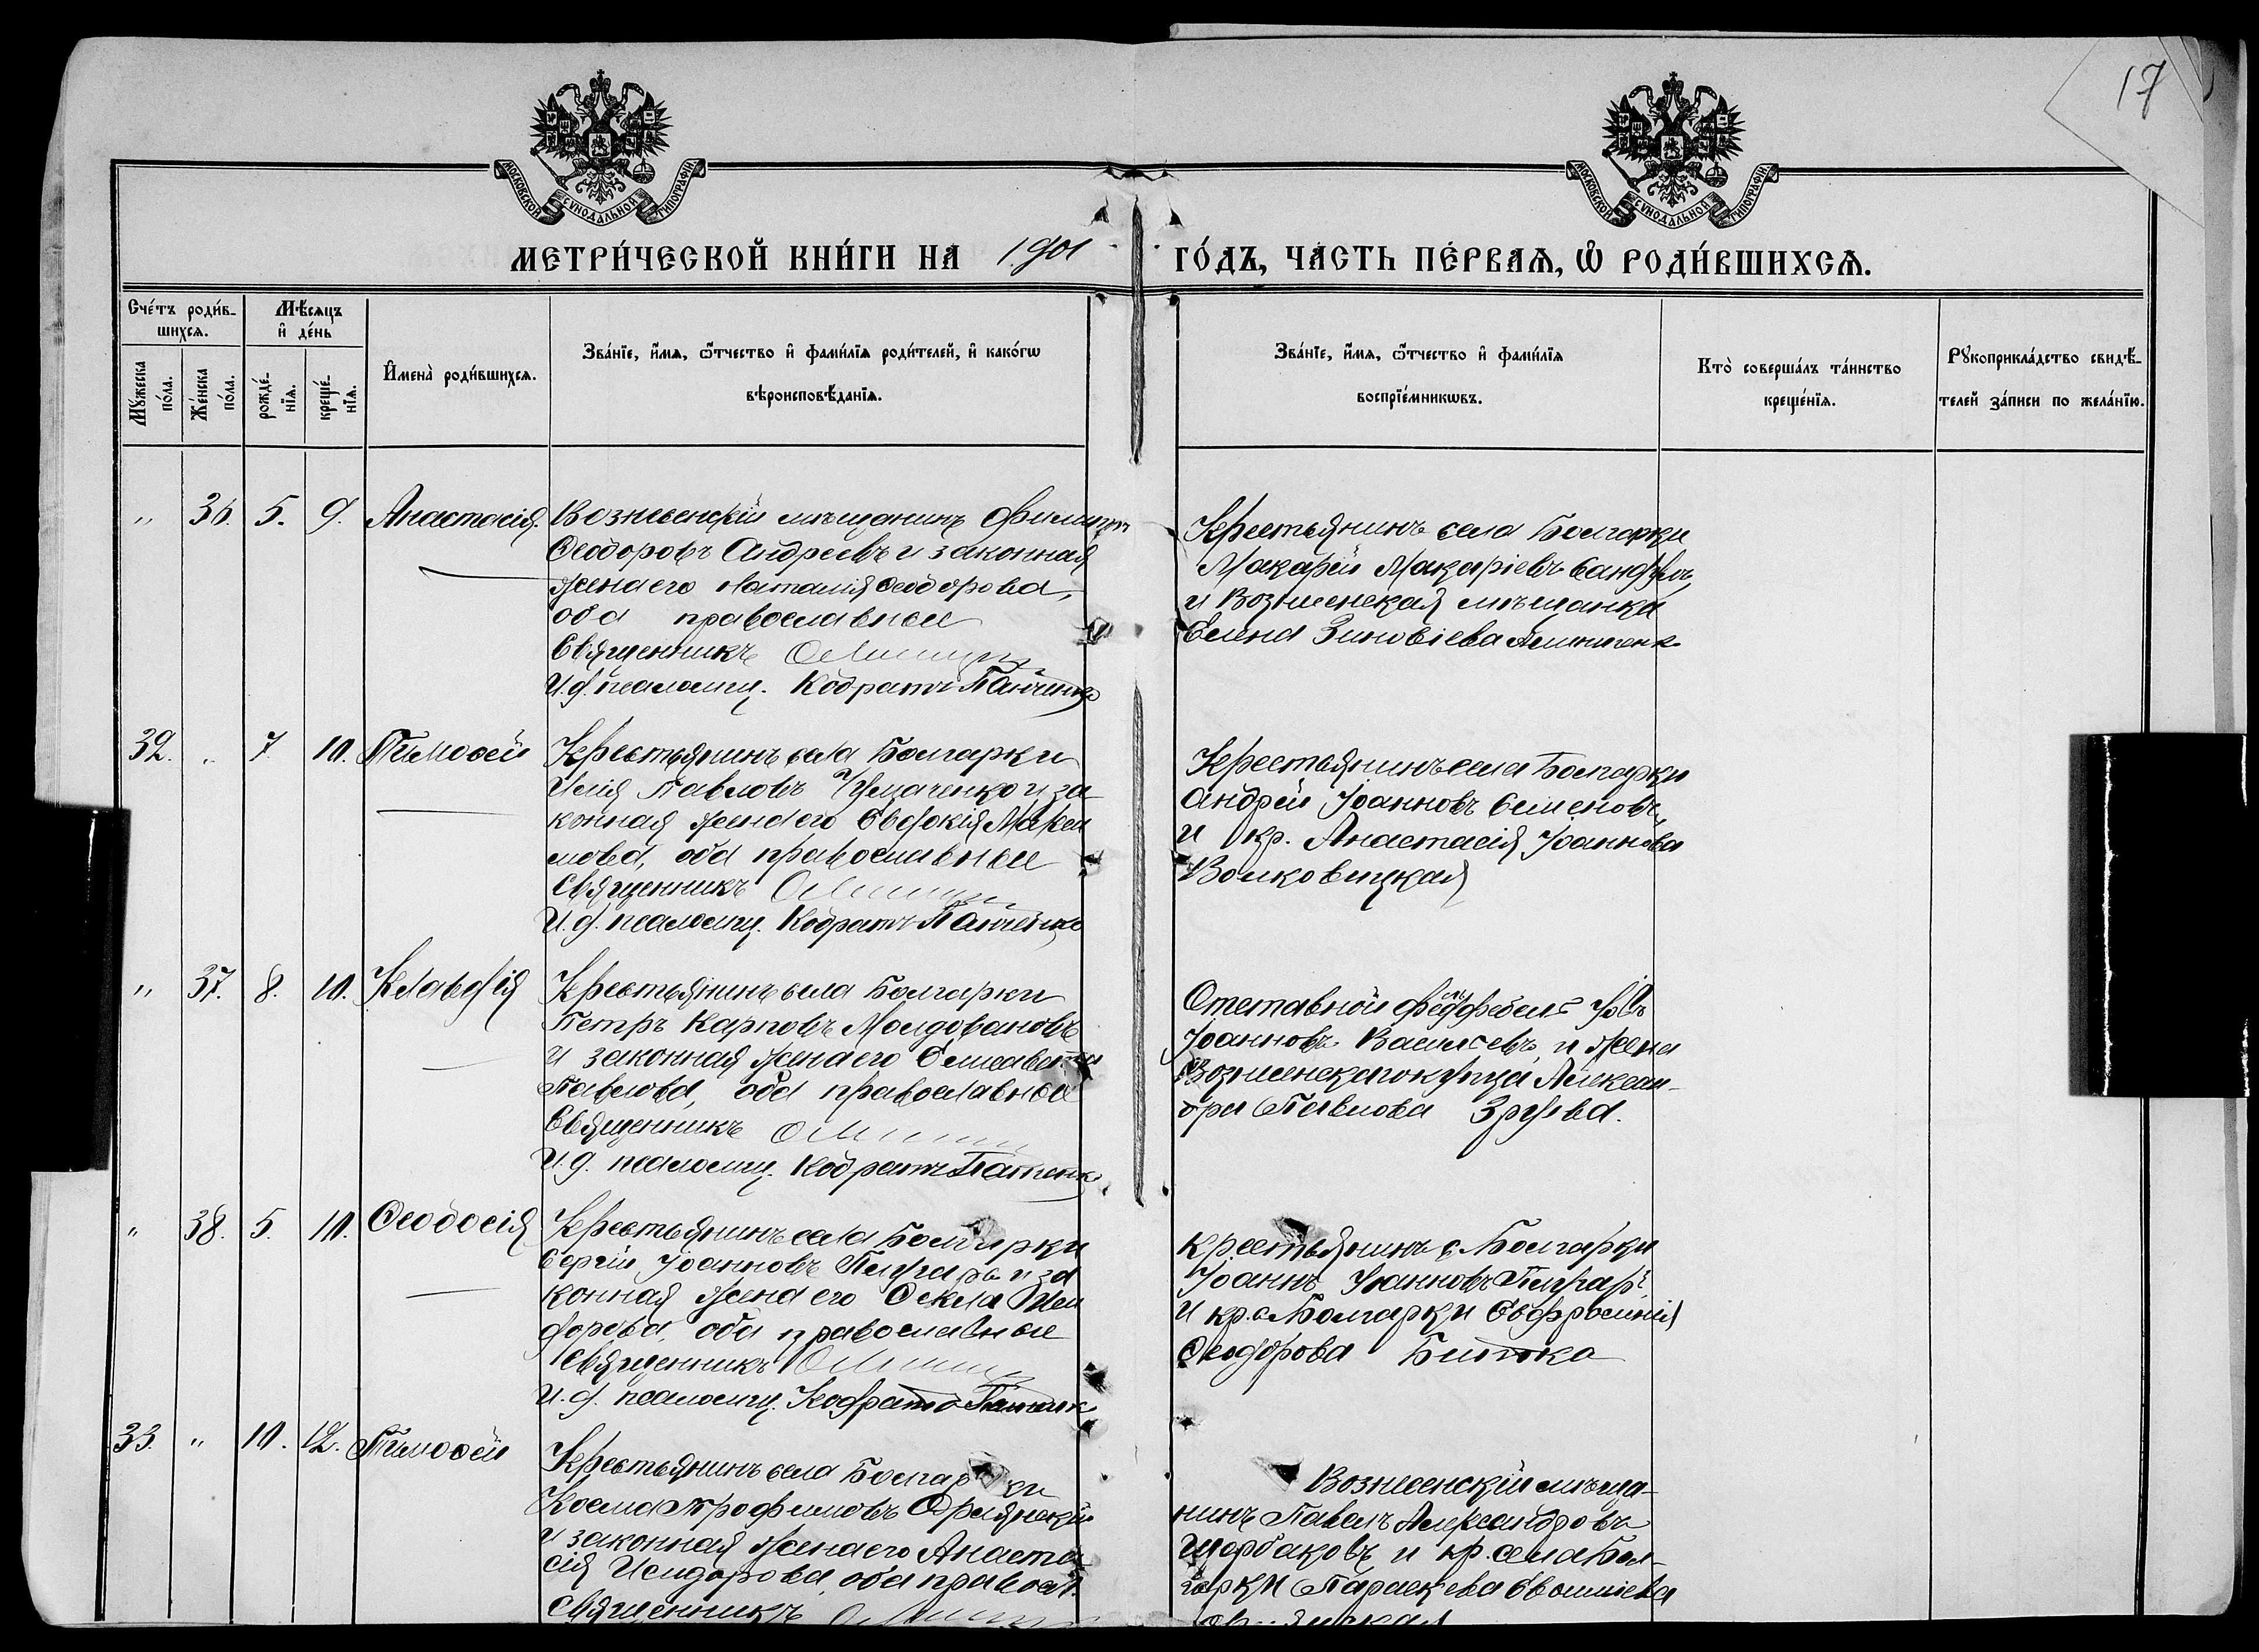 17
МОСКОВСКОЙ СУНОДАЛЬНОЙ ТИПОГРАФІИ
МОСКОВСКОЙ СУНОДАЛЬНОЙ ТИПОГРАФІИ
МЕТРИ́ЧЕСКОЙ КНИ́ГИ НА 1901 ГО́ДЪ, ЧА́СТЬ ПЕ́РВАѦ, Ѡ РОДИ́ВШИХСѦ.
Сче́тъ роди́в-
шихсѧ.
Мѣ́сѧцъ
и де́нь
Мꙋ́жеска
по́ла.
Же́нска
по́ла.
рожде́-
нїѧ.
креще́-
нїѧ.
Имена̀ роди́вшихсѧ.
Зва́нїе, и́мѧ, ѻ҆́тчество и фами́лїѧ роди́телей, и како́гѡ
вѣроисповѣ́данїѧ.
Зва́нїе, и́мѧ, ѻ҆́тчество и фами́лїѧ
воспрїе́мникѡвъ.
Кто̀ соверша́лъ та́инство
креще́нїѧ.
Рꙋкоприкла́дство свидѣ́-
телей за́писи по жела́нїю.
" 36. 5. 9. Анастасія.
Вознесенскій мѣщанинъ Филиппъ
Ѳеодоровъ Андреевъ и законная
жена его Наталія Ѳеодорова,
оба православные
Священникъ
И. д. псаломщ. Кодратъ Панченко
Крестьянинъ села Болгарки
Макарій Макаріевъ
и Вознесенская мѣщанка
Елена Зиновіева
32. " 7 10. Тимоѳей
Крестьянинъ села Болгарки
Илія Павловъ Чумаченко и за
конная жена его Евдокія Макси
мова, оба православные
Священникъ
И. д. псаломщ. Кодратъ Панченко
Крестьянинъ села Болгарки
Андрей Іоанновъ Семеновъ
и кр. Анастасія Іоаннова
Волковицкая
" 37. 8. 10. Клавдія
Крестьянинъ села Болгарки
Петръ Карповъ Молдовановъ
и законная жена его Елисавета
Павлова, оба православные
Священникъ
И. д. псаломщ. Кодратъ Панченко
Отставной фельдфебель
Іоанновъ Васильевъ и жена
Вознесенскаго купца Алексан-
дра Павлова
" 38. 5. 10. Ѳеодосія
Крестьянинъ села Болгарки
Сергій Іоанновъ и за
конная жена его Ѳекла Иси
дорова, оба православные
Священникъ
И. д. псаломщ. Кодратъ Панченко
Крестьянинъ с. Болгарки
Іоаннъ Іоанновъ
и кр. с. Болгарки Евфросинія
Ѳеодорова
33. " 10. 12. Тимоѳей
Крестьянинъ села Болгарки
Косма Трофимовъ
и законная жена его Анаста
сія Исидорова, оба правосл.
Священникъ
Вознесенскій мѣща-
нинъ Павелъ Александровъ
Щербаковъ и кр. села Бол-
гарки Параскева